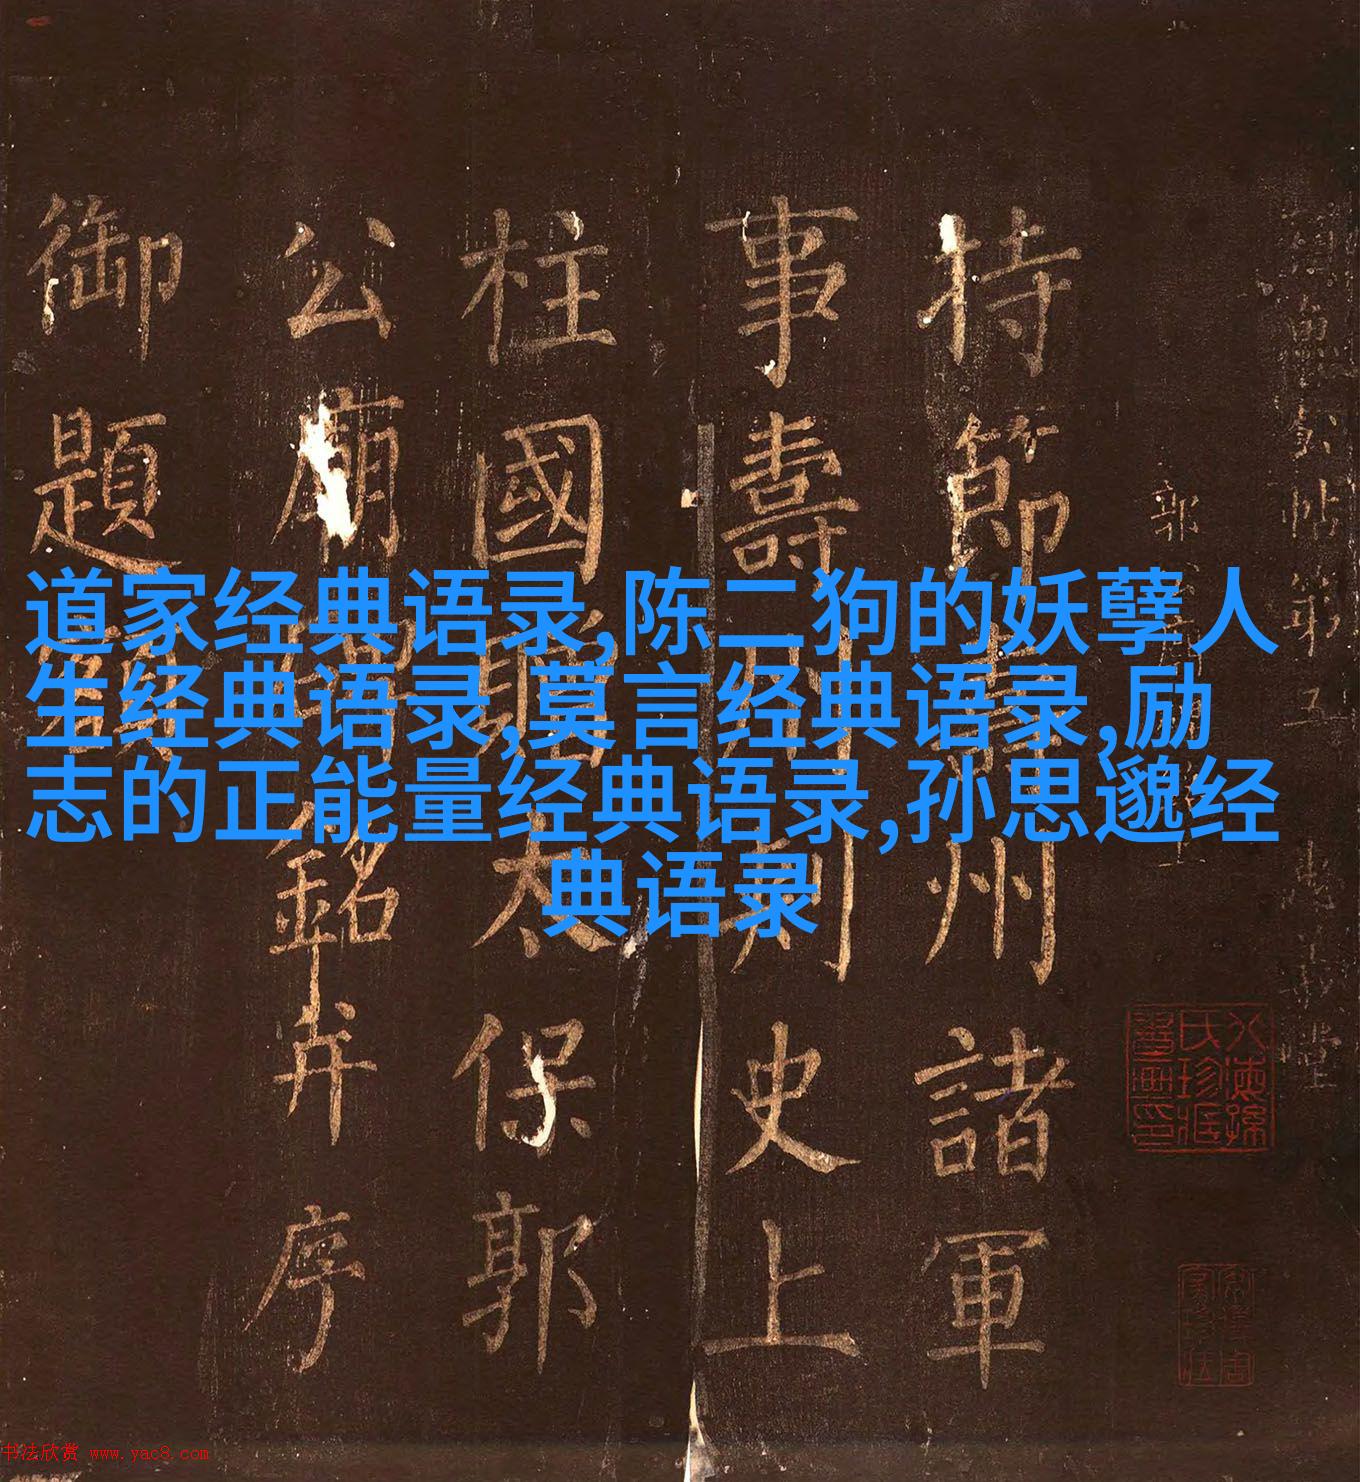 道家经典语录,陈二狗的妖孽人
生经典语录,莫言经典语录,励
志的正能量经典语录,孙思邈经
典语录
忠義堂
持節壽州諸軍
事壽州刺史上
柱國贈太保郭
公廟碑銘并序
御題額
书法欣赏 www.yac8.com